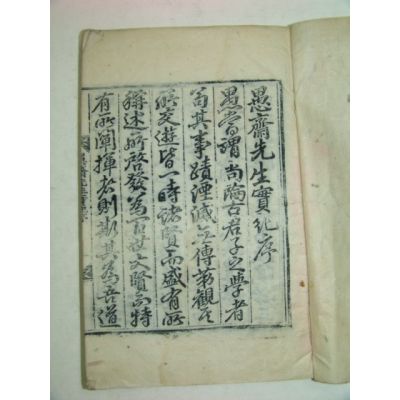 愚齋先生實紀序
愚嘗謂尚論古君子之學者
苟其事蹟湮滅無傳第觀其
所交遊皆一時諸賢而盛有所
稱述所啓發為百世大賢而特
有所闡揮者則斯其為吾道